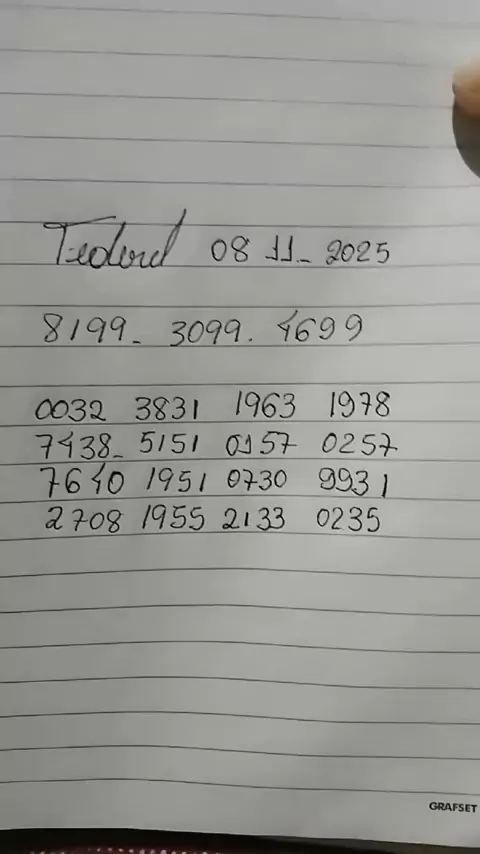 Federal 08 11- 2025
8199- 3099. 4699
0032 3831 1963 1978
7438- 5151 0157 0257
7640 1951 0730 9931
2708 1955 2133 0235
GRAFSET